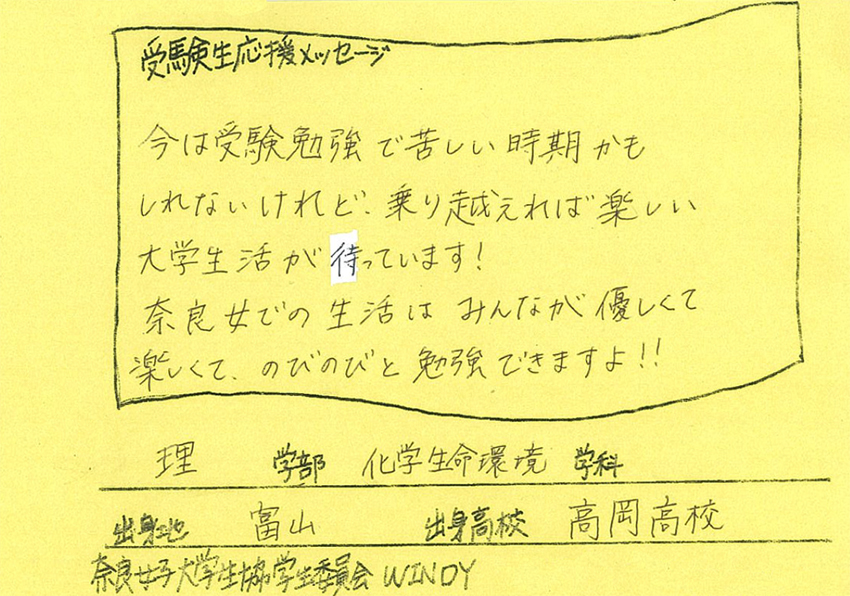 受験生応援メッセージ
今は受験勉強で苦しい時期かも
しれないけれど、乗り越えれば楽しい
大学生活が待っています!
奈良女での生活はみんなが優しくて
楽しくて、のびのびと勉強できますよ!!
理 学部 化学生命環境 学科
出身地 富山 出身高校 高岡高校
奈良女子大学生協学生委員会 WINDY